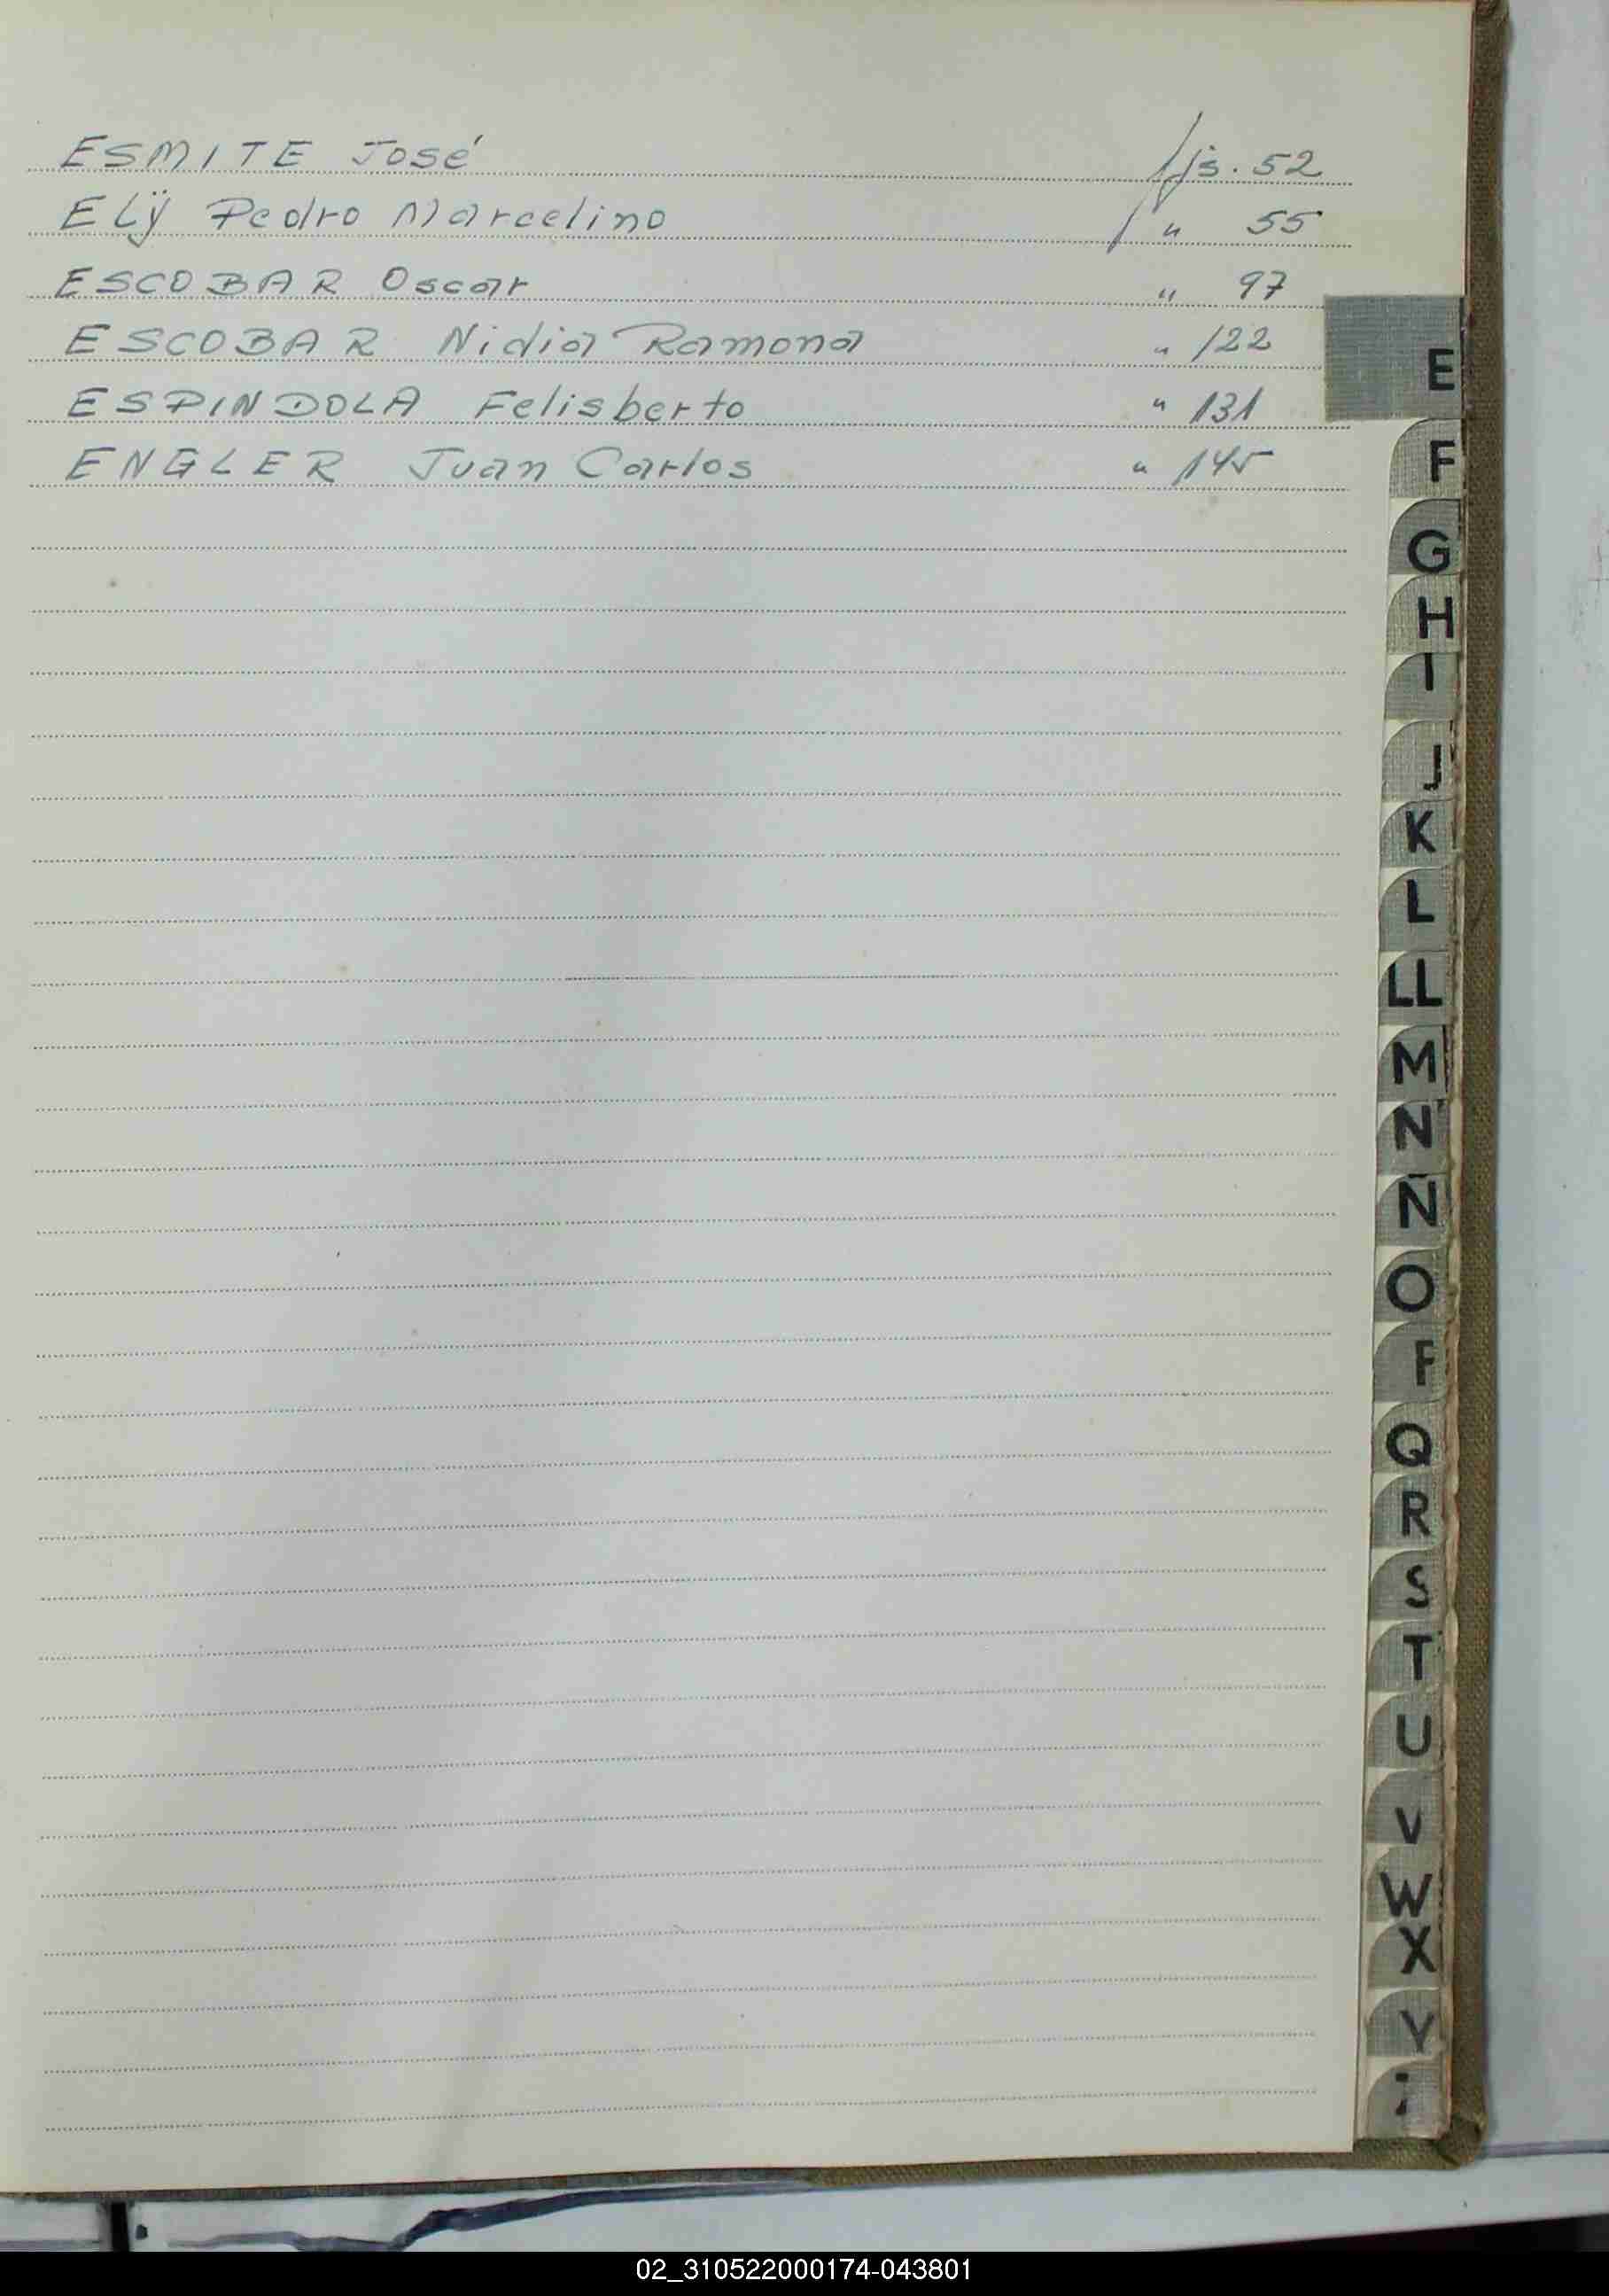 ESMITE José fjs. 52
ELÿ Pedro Marcelino " 55
ESCOBAR Oscar " 97
ESCOBAR Nidia Ramona " 122
ESPINDOLA Felisberto " 131
ENGLER Juan Carlos " 145
E
F
G
H
I
J
K
L
LL
M
N
Ñ
O
P
Q
R
S
T
U
V
W
X
Y
Z
02_310522000174-043801